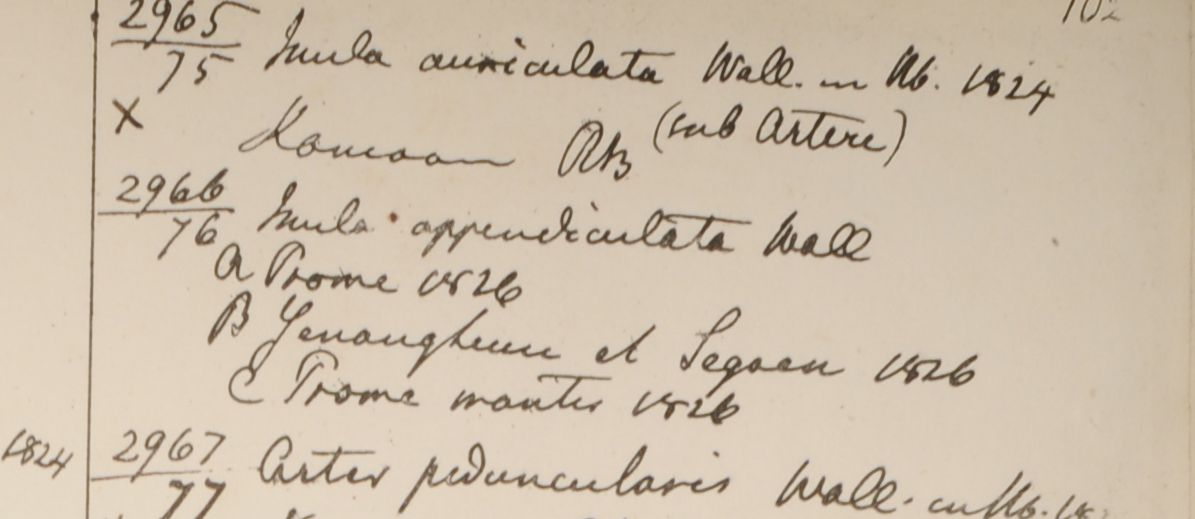 102
2965
75 Inula auriculata Wall. in Hb. 1824
X Kamoon RB (sub Astere)
2966
76 Inula appendiculata Wall
a Prome 1826
B Yenangheun et Segaen 1826
C Prome montes 1826
1824 2967 Aster peduncularis Wall. in Hb. 18
77